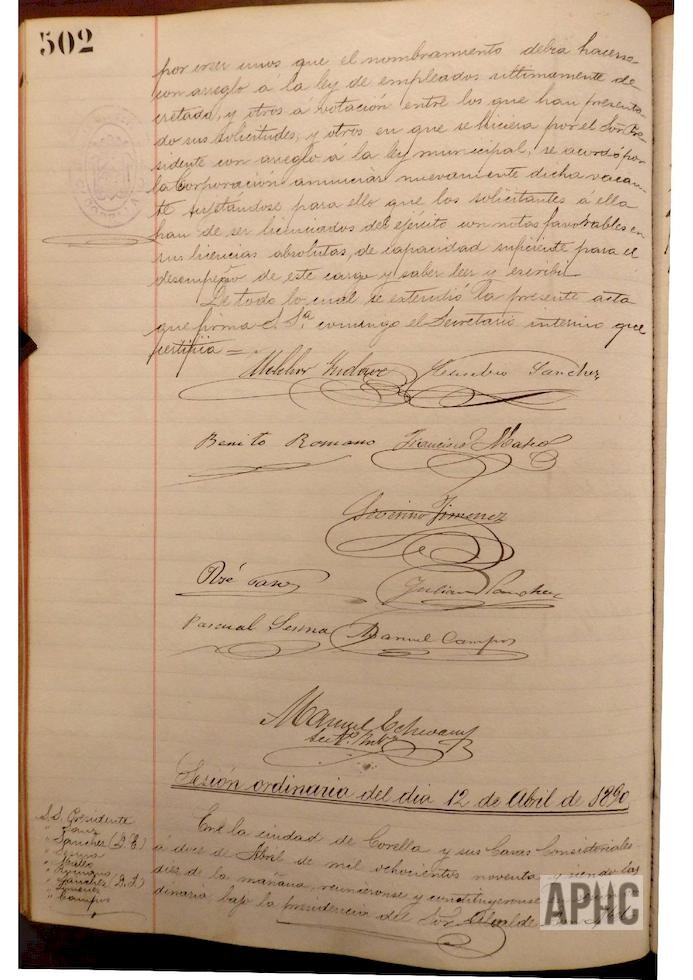 502
por creer unos que el nombramiento debia hacerse
con arreglo á la ley de empleados ultimamente de
cretada, y otros á votación entre los que han presenta-
do sus solicitudes, y otros en que se hiciera por el Sor Pre
sidente con arreglo á la ley municipal, se acordó por
la Corporación anunciar nuevamente dicha vacan-
te sujetándose para ello que los solicitantes á ella
han de ser licenciados del ejército con notas favorables en
sus licencias absolutas, de capacidad suficiente para el
desempeño de este cargo y saber leer y escribir
De todo lo cual se estendió la presente acta
que firma S. Sª. conmigo el Secretario interino que
certifica =
Melchor Eusebio Sanchez
Benito Romano Francisco Mateo
Severino Jimenez
José Sanz Julian Sanchez
Pascual Serma Manuel Campos
Manuel
Secº. Intº
Sesión ordinaria del dia 12 de Abril de 1890
S.S. Presidente
" Sanz
" Sanchez (D. E.)
" Serma
" Mateo
" Romano
" Sanchez (D. J.)
" Jimenez
" Campos
En la ciudad de Corella y sus Casas Consistoriales
á doce de Abril de mil ochocientos noventa, y siendo las
diez de la mañana, reunieronse y constituyeronse
dinaria bajo la presidencia del Sor Alcalde
APHC